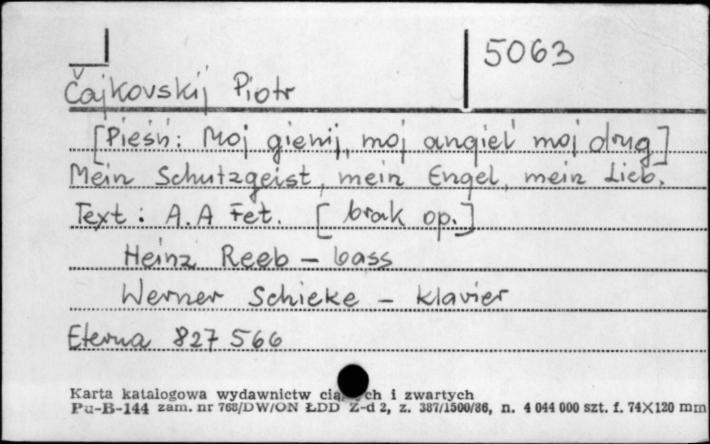 5063
Čajkovskij Piotr
[Pieśń: Moj gienij, moj angieł moj drug]
Mein Schutzgeist, mein Engel, mein Lieb.
Text: A.A Fet. [brak op.]
Heinz Reeb – bass
Werner Schieke – Klavier
Eterna 827 566
Karta katalogowa wydawnictw i zwartych
Pu-B-144 zam. nr 768/DW/ON ŁDD Z-d 2, z. 387/1500/86, n. 4 044 000 szt. f. 74X120 mm